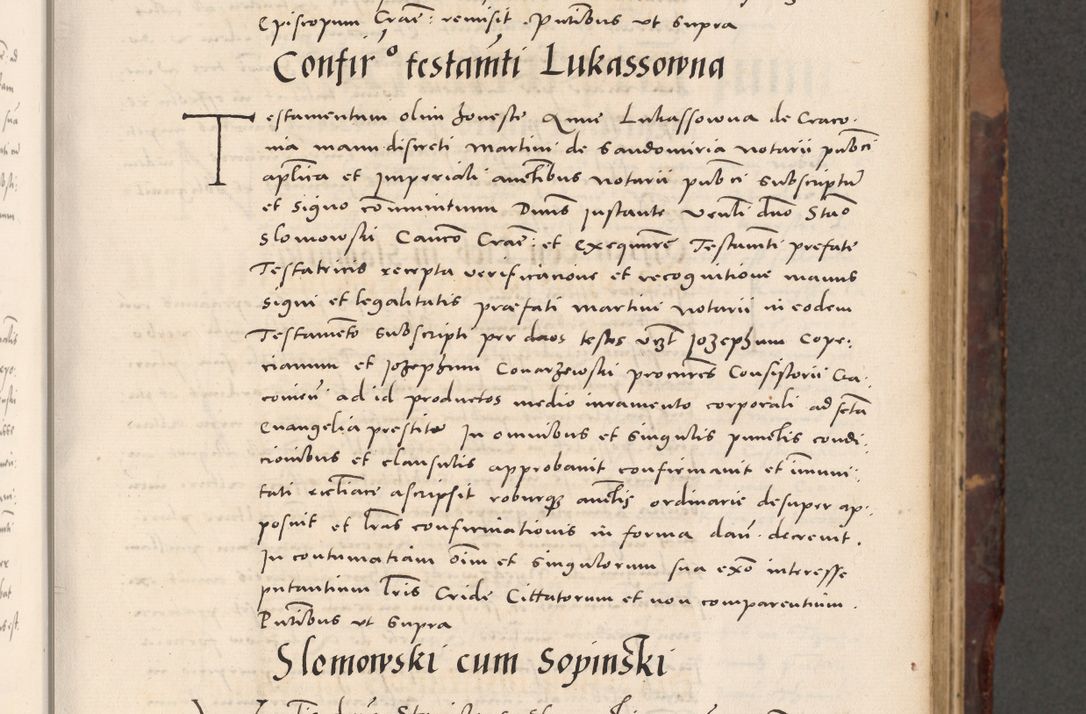 Episcopum Craẽ: remisit. Pñtibus ut supra
Confirº testamti Lukassowna
Testamentum olim honeste Anne Lukassowna de Craco:
via manu discreti Martini de Sandomiria Notarii publici
aplica et Imperiali auctibus notarii publici subscriptũ
et signo communitum Dnus Instante Venli dno Stao
Slomowski Canco Craẽ: et Exequutore Testamti prefate
Testatricis recepta verificatione et recognitione manus
Signi et legalitatis præfati Martini Notarii in eodem
Testamento subscripti per duos testes vzt Jozephum Cope:
cianum et Jozephum Conarzewski procures Consistorii Cra:
covien ad id productos medio iuramento corporali ad scta
Euangelia prestito In omnibus et singulis punctis condi:
cionibus et clausulis approbavit confirmavit et immuni:
tati eccliace ascripsit roburque auctis ordinarie desuper ap:
posuit et lras confirmationis in forma dari decrevit.
In contumatiam oim et singulorum sua exo interesse
putantium lris Cride Cittatorum et non comparentium.
Pñtibus ut supra
Slomowski cum Sopinski